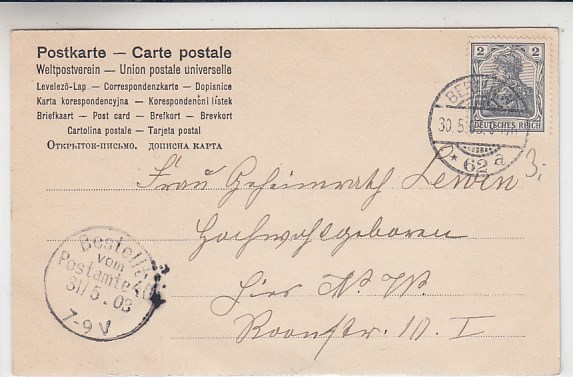 Postkarte — Carte postale
Weltpostverein — Union postale universelle
Levelező-Lap — Correspondenzkarte — Dopisnice
Karta korespondencyjna — Korespondenční lístek
Briefkaart — Post card — Brefkort — Brevkort
Cartolina postale — Tarjeta postal
Открытое-письмо. дописна карта
2 2
DEUTSCHES REICH
BERLIN
30.5.03.
* 62 a
3.
Frau Geheimrath Lewin
Hochwohlgeboren
Hier N. W.
Roonstr. 10. I
Bestellt
vom
Postamte 40
31/5.03
7-9V